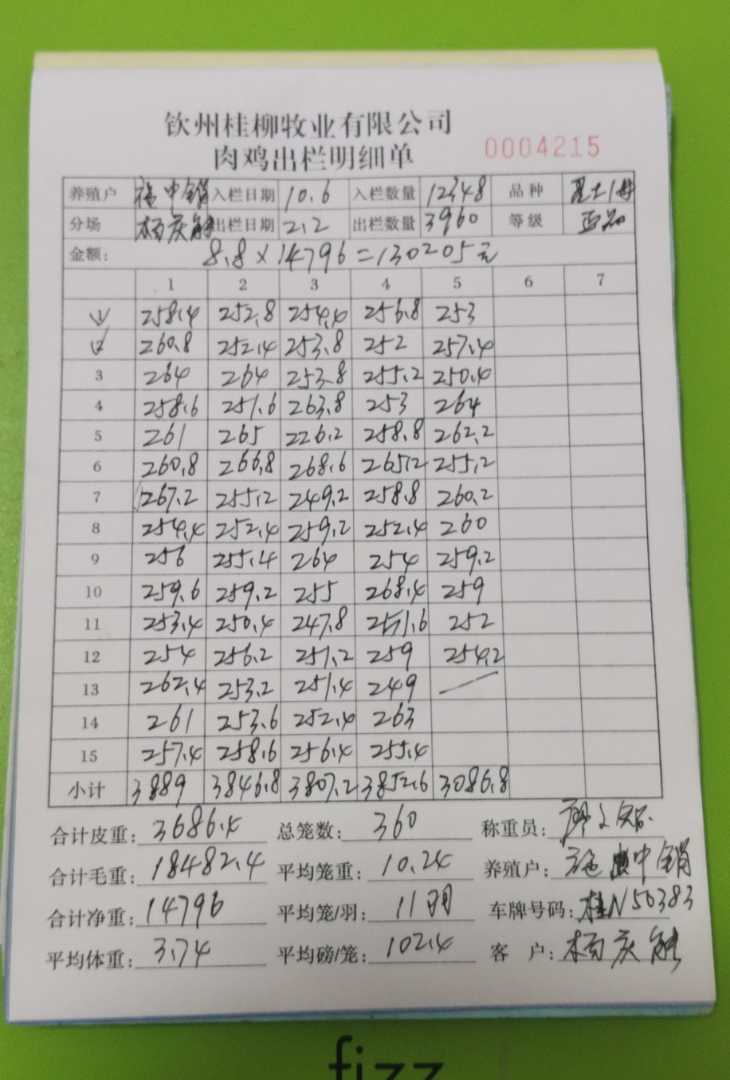 钦州桂柳牧业有限公司
肉鸡出栏明细单 0004215
养殖户 中销 入栏日期 10.6 入栏数量 12348 品种
分场 杨庆能 出栏日期 2.2 出栏数量 3960 等级 正品
金额: 8.8×14796=130205元
1 2 3 4 5 6 7
258.4 252.8 254.4 256.8 253
260.8 252.4 253.8 252 257.4
3 264 264 253.8 255.2 250.4
4 258.6 251.6 263.8 253 264
5 261 265 226.2 258.8 262.2
6 260.8 266.8 268.6 265.2 255.2
7 267.2 255.2 249.2 258.8 260.2
8 254.4 252.4 259.2 252.4 260
9 256 255.4 264 254 259.2
10 259.6 259.2 255 268.4 259
11 253.4 250.4 247.8 251.6 252
12 254 256.2 251.2 259 254.2
13 262.4 253.2 251.4 249
14 261 253.6 252.4 263
15 257.4 258.6 256.4 255.4
小计 3889 3846.8 3807.2 3852.6 3086.8
合计皮重: 3686.4 总笼数: 360 称重员:
合计毛重: 18482.4 平均笼重: 10.24 养殖户: 施 中销
合计净重: 14796 平均笼/羽: 11羽 车牌号码: 桂N50383
平均体重: 3.74 平均磅/笼: 102.4 客 户: 杨庆能
fizz